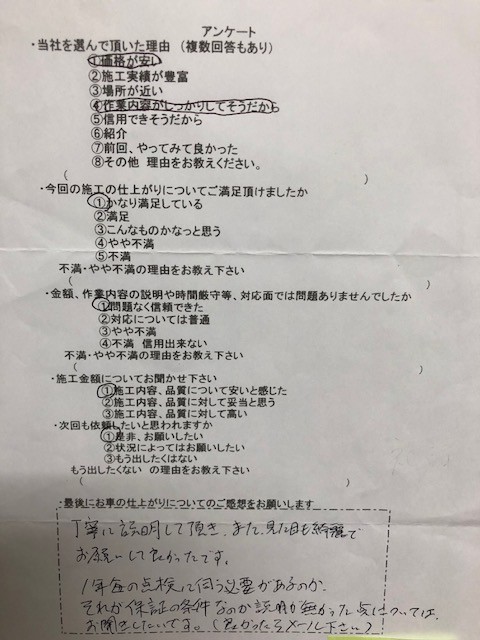 アンケート
・当社を選んで頂いた理由 (複数回答もあり)
①価格が安い
②施工実績が豊富
③場所が近い
④作業内容がしっかりしてそうだから
⑤信用できそうだから
⑥紹介
⑦前回、やってみて良かった
⑧その他 理由をお教えください。
( )
・今回の施工の仕上がりについてご満足頂けましたか
①かなり満足している
②満足
③こんなものかなっと思う
④やや不満
⑤不満
不満・やや不満の理由をお教え下さい
( )
・金額、作業内容の説明や時間厳守等、対応面では問題ありませんでしたか
①問題なく信頼できた
②対応については普通
③やや不満
④不満 信用出来ない
不満・やや不満の理由をお教え下さい
( )
・施工金額についてお聞かせ下さい
①施工内容、品質について安いと感じた
②施工内容、品質に対して妥当と思う
③施工内容、品質に対して高い
・次回も依頼したいと思われますか
①是非、お願いしたい
②状況によってはお願いしたい
③もう出したくはない
もう出したくない の理由をお教え下さい
( )
・最後にお車の仕上がりについてのご感想をお願いします
丁寧に説明して頂き、また、見た目も綺麗で
お願いして良かったです。
1年毎の点検に伺う必要があるのか、
それが保証の条件なのか説明が無かった点については、
お聞きしたいです。(良かったらメール下さい)